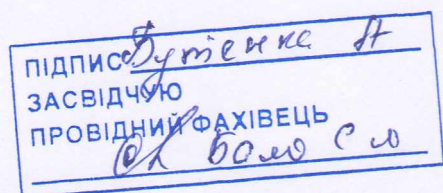 ПІДПИС Бутенка А
ЗАСВІДЧУЮ
ПРОВІДНИЙ ФАХІВЕЦЬ